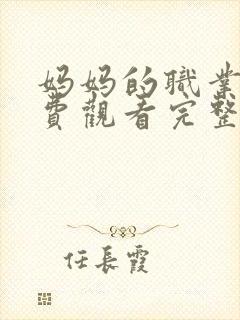 妈妈的職業
費觀看完整
任長霞